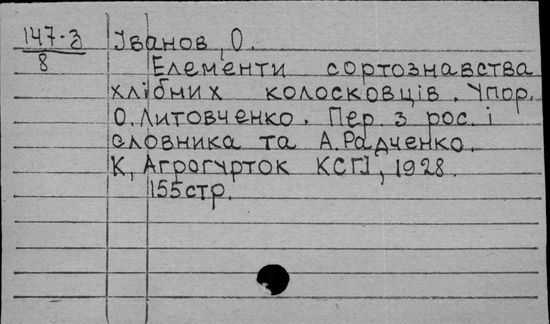 147-з
8
Іванов, О.
Елементи сортознавства
хлібних колосковців. Упор.
О. Литовченко. Пер. з рос. і
словника та А. Радченко.
К, Агрогурток КСГІ, 1928.
155стр.